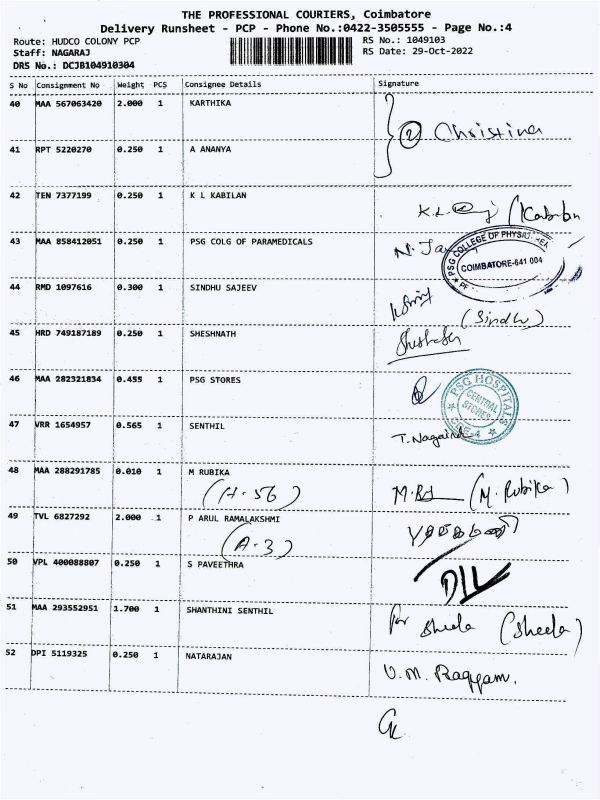 THE PROFESSIONAL COURIERS, Coimbatore
Delivery Runsheet - PCP - Phone No.:0422-3505555 - Page No.:4
Route: HUDCO COLONY PCP RS No.: 1049103
Staff: NAGARAJ RS Date: 29-Oct-2022
DRS No.: DCJB104910304
S No Consignment No Weight PCS Consignee Details Signature
40 MAA 567063420 2.000 1 KARTHIKA
2 Christina
41 RPT 5220270 0.250 1 A ANANYA
42 TEN 7377199 0.250 1 K L KABILAN
43 MAA 858412051 0.250 1 PSG COLG OF PARAMEDICALS
PSG COLLEGE OF
COIMBATORE-641 004
44 RMD 1097616 0.300 1 SINDHU SAJEEV
(Sindhu)
45 HRD 749187189 0.250 1 SHESHNATH
46 MAA 282321834 0.455 1 PSG STORES
PSG HOSPITALS
CENTRAL
STORES
CBE-4
47 VRR 1654957 0.565 1 SENTHIL
T. Nagaraj
48 MAA 288291785 0.010 1 M RUBIKA
(H-56) (M. Rubika)
49 TVL 6827292 2.000 1 P ARUL RAMALAKSHMI
(A-3)
50 VPL 400088807 0.250 1 S PAVEETHRA
D/L
51 MAA 293552951 1.700 1 SHANTHINI SENTHIL
for Sheela (Sheela)
52 DPI 5119325 0.250 1 NATARAJAN